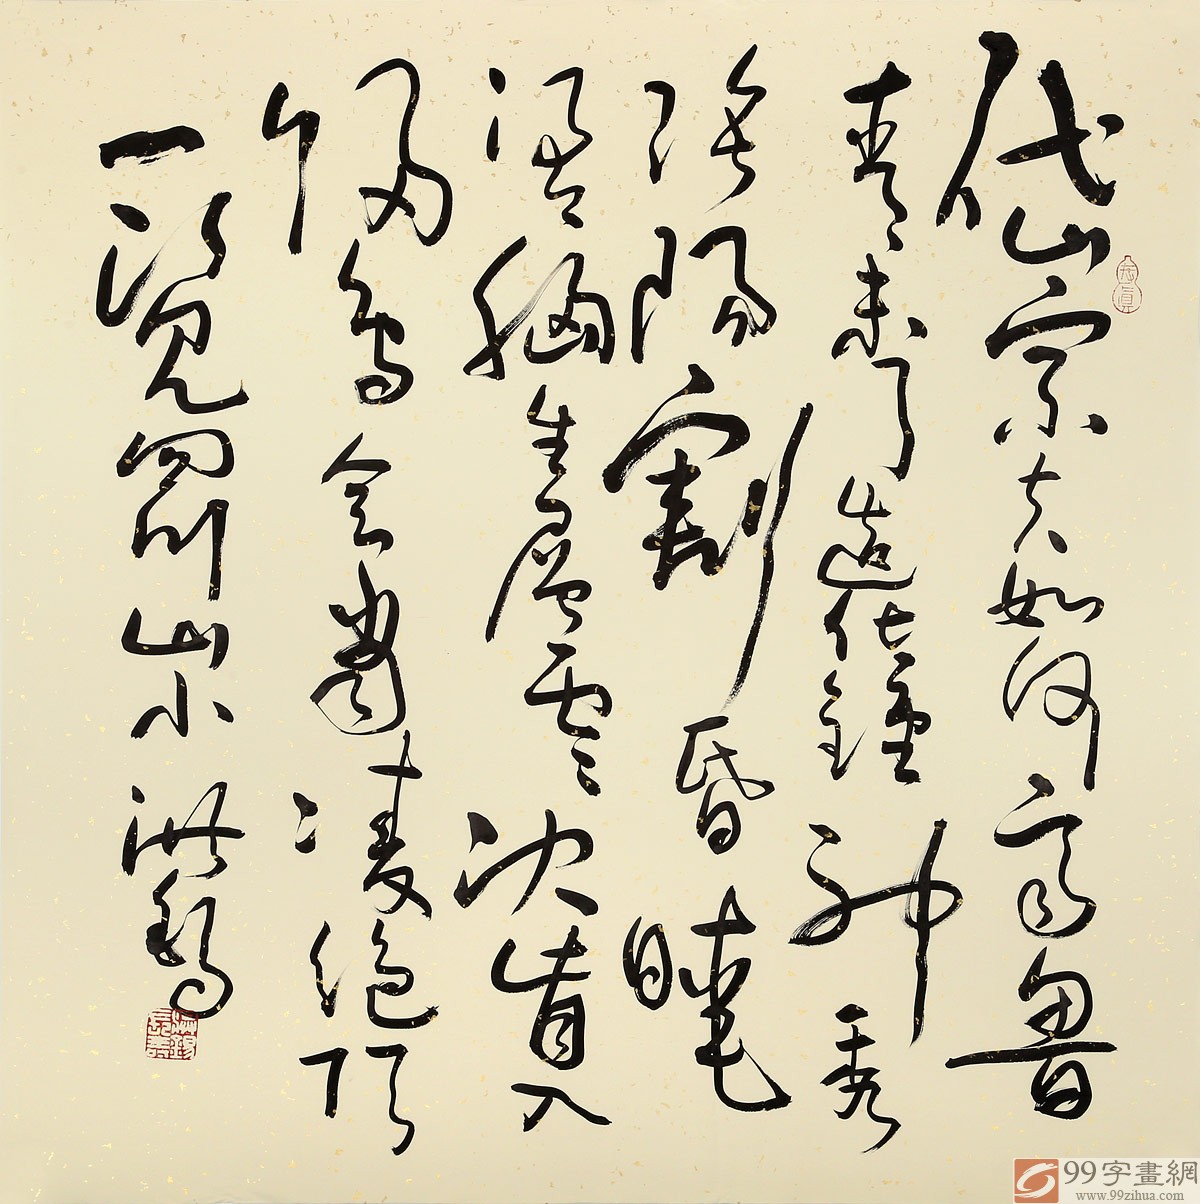 岱宗夫如何齊魯
青未了造化鍾神秀
陰陽割昏曉
盪胸生層雲決眥入
歸鳥會當凌絕頂
一覽眾山小
99字畫網
www.99zihua.com